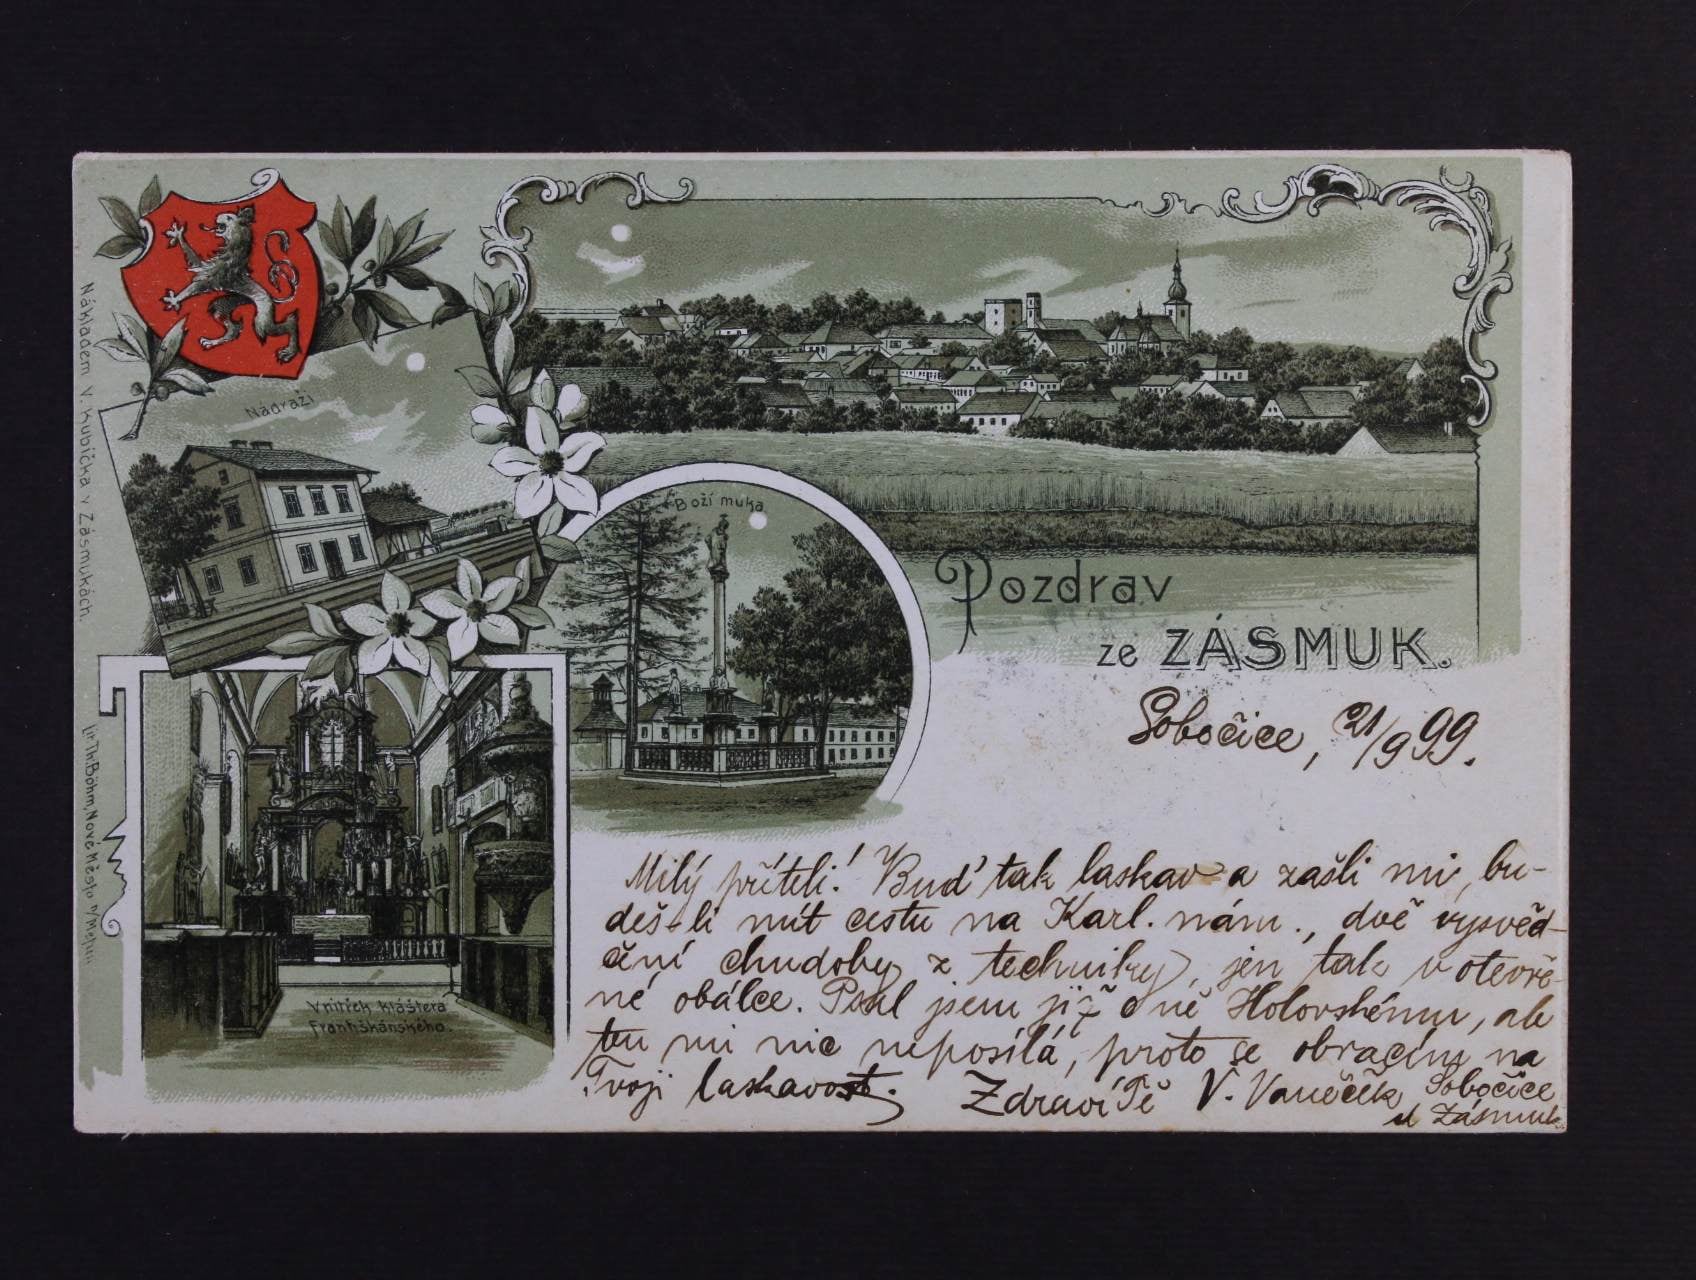 Nákladem V. Kubička v Zásmukách.
Nádraží
Boží muka
Pozdrav
ze ZÁSMUK.
Vnitřek kláštera
Františkánského.
Lit. Th. Böhm, Nové Město n/Metují
Sobočice, 21/9 99.
Milý příteli! Buď tak laskav a zašli mi, bu-
deš-li mít cestu na Karl. nám., dvě vysvěd-
čení chudoby z techniky, jen tak v otevře-
né obálce. Psal jsem již o ně Holovskému, ale
ten mi nic neposílá, proto se obracím na
Tvoji laskavost. Zdraví Tě V. Vaněček Sobočice
u Zásmuk